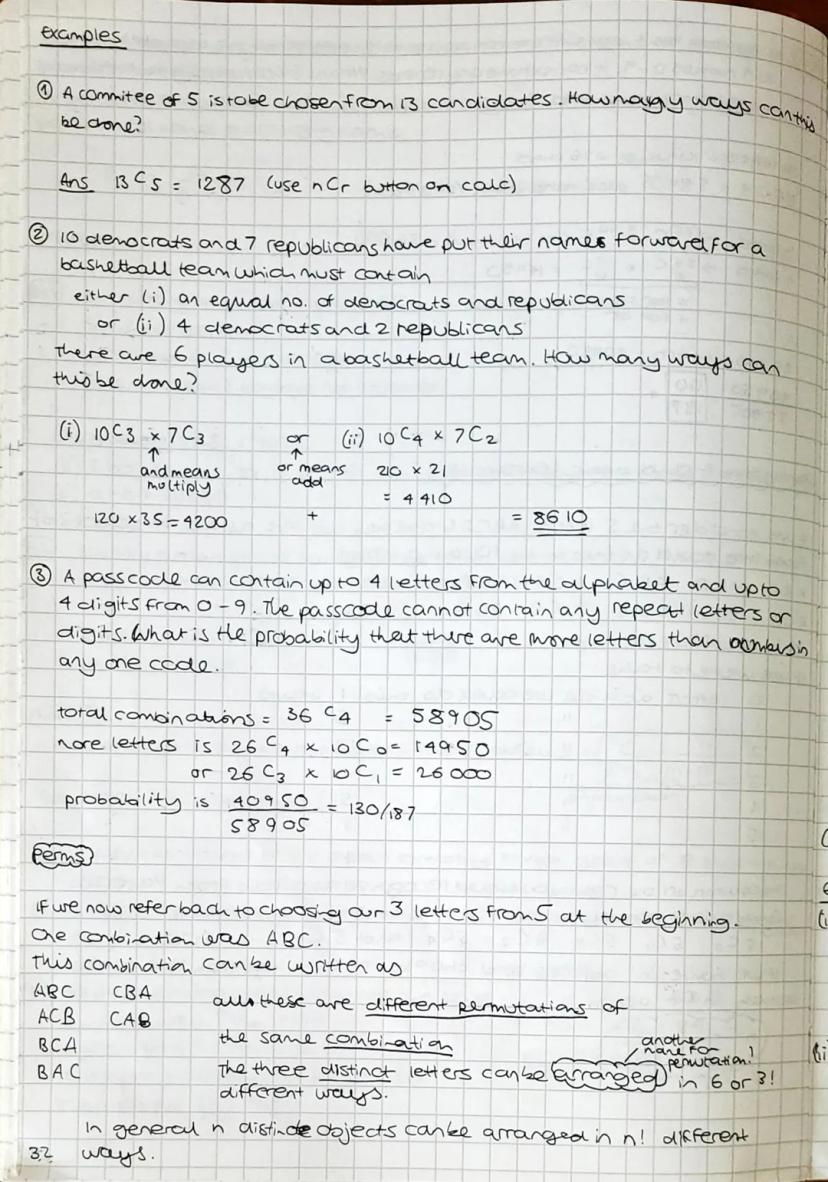 examples
① A commitee of 5 is to be chosen from 13 candidates. How maygy ways can this
be done?
Ans 13C5 = 1287 (use nCr button on calc)
② 10 democrats and 7 republicans have put their names forward for a
basketball team which must contain
either (i) an equal no. of democrats and republicans
or (ii) 4 democrats and 2 republicans
There are 6 players in a basketball team. How many ways can
this be done?
(i) 10C3 × 7C3 or (ii) 10C4 × 7C2
↑ ↑
and means multiply or means add 210 × 21
= 4410
120 × 35 = 4200 + = 8610
③ A passcode can contain up to 4 letters from the alphabet and up to
4 digits from 0-9. The passcode cannot contain any repeat letters or
digits. What is the probability that there are more letters than numbers in
any one code.
total combinations = 36C4 = 58905
more letters is 26C4 × 10C0 = 14950
or 26C3 × 10C1 = 26000
probability is 40950/58905 = 130/187
Perms
If we now refer back to choosing our 3 letters from 5 at the beginning.
One combination was ABC.
This combination can be written as
ABC CBA
ACB CAB
BCA
BAC
all these are different permutations of
the same combination
another name for permutation!
The three distinct letters can be arranged in 6 or 3!
different ways.
In general n distincte objects can be arranged in n! different
ways.
32